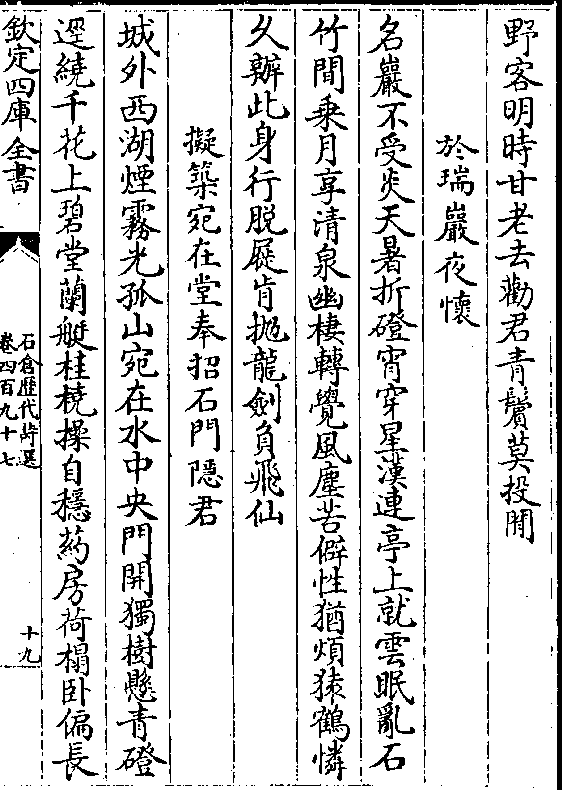 野客明時甘老去勸君青鬢莫投閒
於瑞巖夜懷
名巖不受炎天暑折磴宵穿星漢連亭上就雲眠亂石
竹間乗月享清泉幽棲轉覺風塵苦僻性猶煩猿鶴憐
久辦此身行脱屣肯抛龍劍負飛仙
擬築宛在堂奉招石門隠君
城外西湖煙霧光孤山宛在水中央門開獨樹懸青磴
逕繞千花上碧堂蘭艇桂橈操自穩葯房荷榻卧偏長
欽定四庫全書
石倉歴代詩選
卷四百九十七
十九